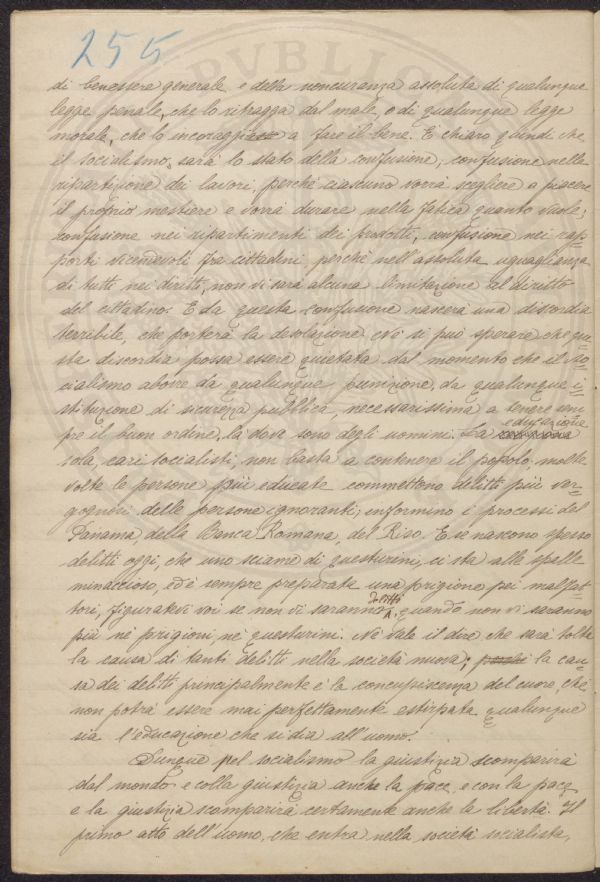 255
di benessere generale e della noncuranza assoluta di qualunque
legge penale, che lo ritragga dal male, o di qualunque legge
morale, che lo incoraggi a fare il bene. È chiaro quindi che
il socialismo, sarà lo stato della confusione; confusione nella
ripartizione dei lavori, perchè ciascuno vorrà scegliere a piacere
il proprio mestiere e vorrà durare nella fatica quanto vuole;
confusione nei ripartimenti dei prodotti, confusione nei rap-
porti vicendevoli fra cittadini perchè nell'assoluta uguaglianza
di tutti nei diritti, non vi sarà alcuna limitazione al diritto
del cittadino. E da questa confusione nascerà una discordia
terribile, che porterà la desolazione. Nè si può sperare che que-
sta discordia possa essere quietata dal momento che il so-
cialismo aborre da qualunque punizione, da qualunque i-
stituzione di sicurezza pubblica, necessarissima a tenere sem-
pre il buon ordine, là dove sono degli uomini. La educazione
sola, cari socialisti, non basta a contenere il popolo, molte
volte le persone più educate commettono delitti più ver-
gognosi delle persone ignoranti; informino i processi del
Panama, della Banca Romana, del Riso. E se nascono spesso
delitti oggi, che uno sciame di questurini, ci sta alle spalle
minaccioso, ed è sempre preparata una prigione pei malfat-
tori, figuratevi voi se non vi saranno delitti, quando non vi saranno
più nè prigioni nè questurini. Nè vale il dire che sarà tolta
la causa di tanti delitti nella società nuova; la cau-
sa dei delitti principalmente è la concupiscenza del cuore, che
non potrà essere mai perfettamente estirpata qualunque
sia l'educazione che si dia all'uomo.
Dunque pel socialismo la giustizia scomparirà
dal mondo e colla giustizia anche la pace, e con la pace
e la giustizia scomparirà certamente anche la libertà. Il
primo atto dell'uomo, che entra nella società socialista,